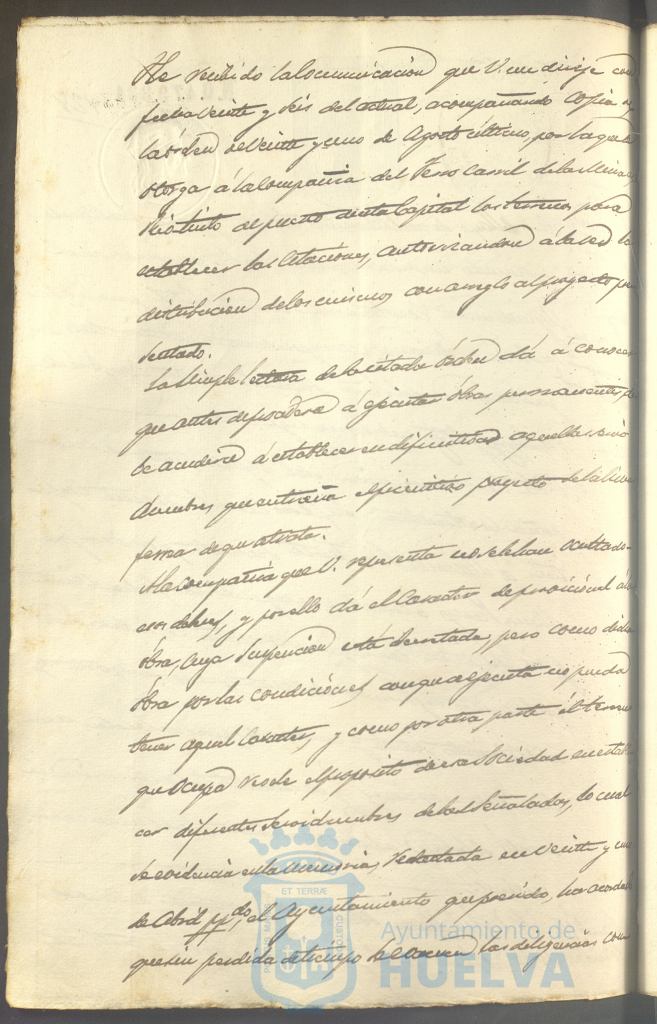 He recibido la Comunicacion que V. me dirije con
fecha Veinte y seis del actual, acompañando Copia de
la órden de Veinte y uno de Agosto último, por la que se
otorga á la Compañia del Ferro Carril de las Minas de
Rio tinto al puerto de esta Capital los terrenos para
establecer las Estaciones, autorizandose á la vez la
distribucion de los mismos con arreglo al proyecto pre
sentado.
La simple lectura de la citada órden dá á conocer
que antes de proceder á ejecutar obras permanentes, se
ha de acudir á establecer en definitiva aquellas servi
dumbres que entraña el primitivo proyecto de la linea
ferrea de que se trata.
A la Compañia que V. representa no se le han ocultado
esos deberes, y por ello dá el Caracter de provicional á la
obra, cuya suspencion está decretada, pero como dicha
obra por las condiciones con que se ejecuta no pueda
tener aquel Caracter, y como por otra parte el terreno
que ocupa no es el proposito de esa Sociedad estable
cer diferentes servidumbres de las señaladas, lo cual
se evidencia en la Memoria, redactada en Veinte y uno
de Abril ppdo, el Ayuntamiento que presido, ha acordado
que sin perdida de tiempo se evacuen las diligencias con
ET TERRÆ
CUSTODIA
Ayuntamiento de
HUELVA